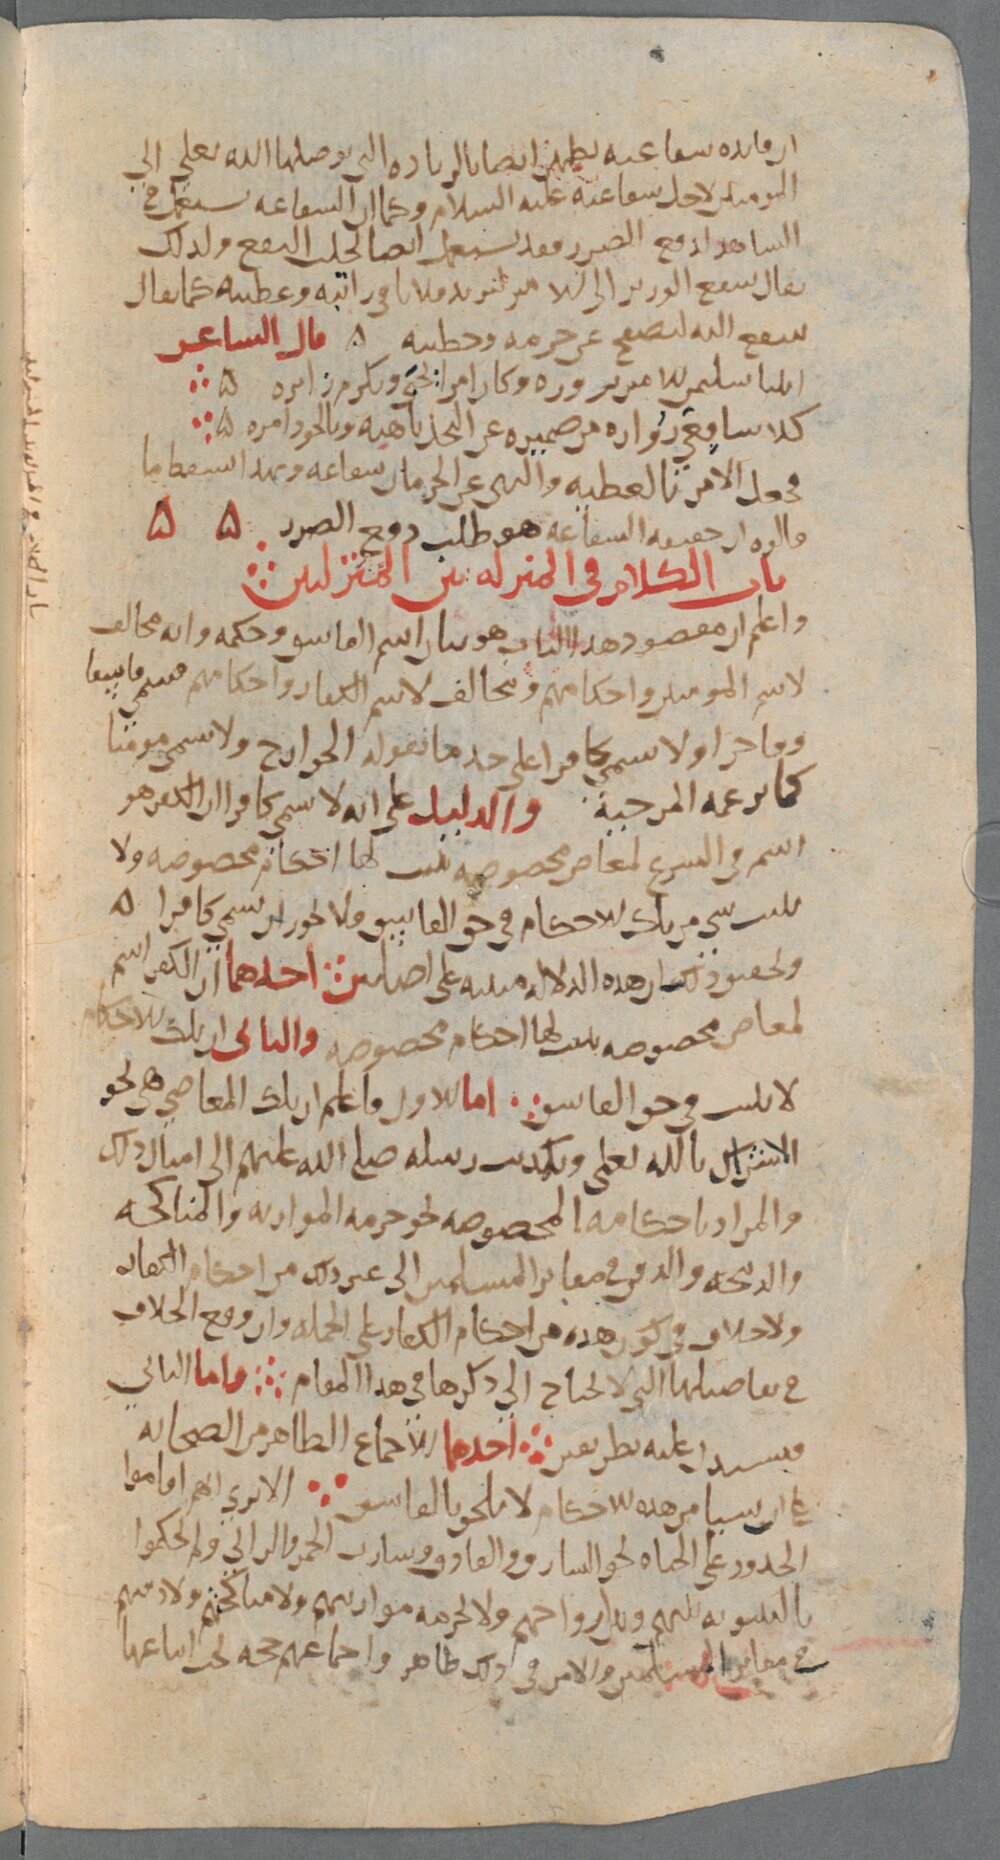 ان فائده شفاعته تظهر ايضا بالزياده التي يوصلها الله تعلى الى
المومنين لاجل شفاعته عليه السلام وكما ان الشفاعه تستعمل في
الشاهد لدفع الضرر فقد تستعمل ايضا لجلب النفع ولذلك
يقال شفع الوزير الى الامير ليزيد فلانا في راتبه وعطيته كما يقال
شفع اليه ليصفح عن جرمه وخطيته ٥ قال الشاعر
اتينا سليمن الامير نزوره وكان امرا يحبى ويكرم زايره ٥
كلا شافعي زواره من ضميره عن البخل ناهيه وبالجود امره ٥
فجعل الامر بالعطيه والنهي عن الحرمان شفاعه وبهذا اسقط ما
قالوه ان حقيقه الشفاعه هو طلب دفع الضرر ٥ ٥
باب الكلام في المنزله بين المنزلتين
واعلم ان مقصود هذا الباب هو بيان اسم الفاسق وحكمه وانه مخالف
لاسم المومنين واحكامهم ومخالف لاسم الكفار واحكامهم فيسمى فاسقا
وفاجرا ولا يسمى كافرا على حد ما تقوله الخوارج ولا يسمى مومنا
كما يزعمه المرجية والدليل على انه لا يسمى كافرا ان الكفر هو
اسم في الشرع لمعاص مخصوصه تثبت لها احكام مخصوصه ولا
يثبت شي من تلك الاحكام في حق الفاسق فلا يجوز ان يسمى كافرا ٥
وتحقيق ذلك ان هذه الدلاله مبنيه على اصلين احدهما ان الكفر اسم
لمعاص مخصوصه تثبت لها احكام مخصوصه والثاني ان تلك الاحكام
لا تثبت في حق الفاسق اما الاول فاعلم ان تلك المعاصي هي نحو
الاشراك بالله تعلى وتكذيب رسله صلى الله عليهم الى امثال ذلك
والمراد باحكامه المخصوصه نحو حرمه الموارثه والمناكحه
والذبيحه والدفن في مقابر المسلمين الى غير ذلك من احكام الكفار
ولا خلاف في كون هذه من احكام الكفار على الجمله وان وقع الخلاف
في تفاصيلها التي لا نحتاج الى ذكرها في هذا المقام واما الثاني
فيستدل عليه بطريقين احدهما الاجماع الظاهر من الصحابه
على ان شيا من هذه الاحكام لا يلحق بالفاسق الا ترى انهم اقاموا
الحدود على الجناه نحو السارق والقاذف وشارب الخمر والزاني ولم يحكموا
بالبينونه بينهم وبين ازواجهم ولا بحرمه موارثتهم ولا مناكحتهم ولا دفنهم
في مقابر المسلمين والامر في ذلك ظاهر واجماعهم حجه يجب اتباعها
باب الكلام في المنزله بين المنزلتين